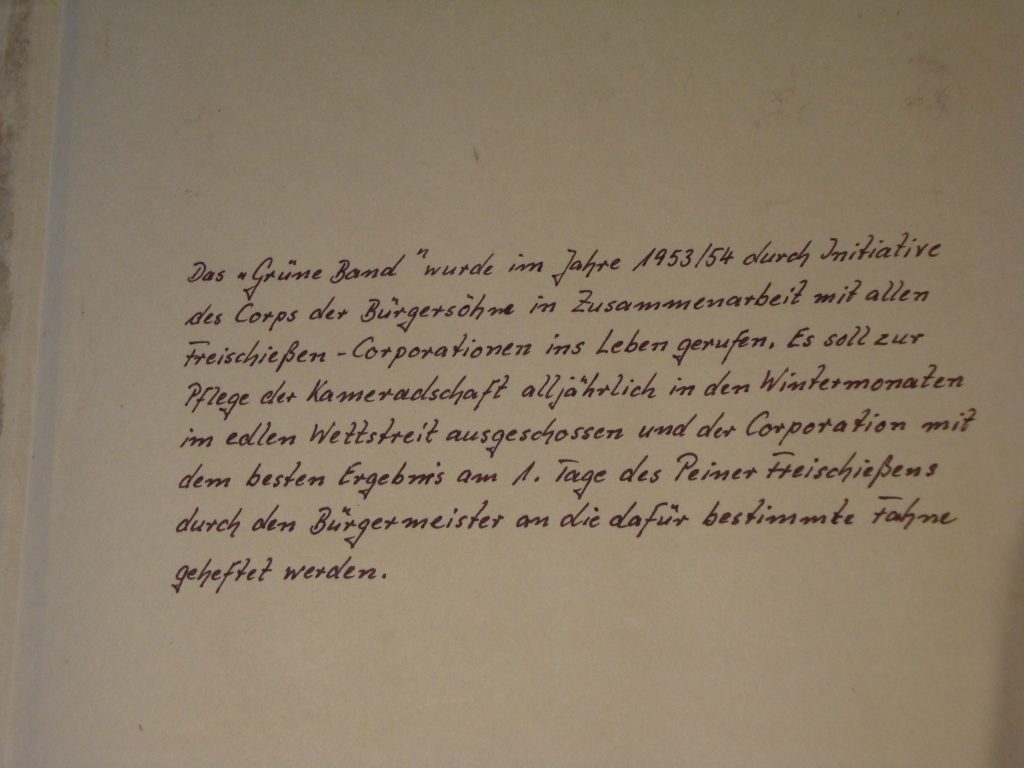 Das „Grüne Band" wurde im Jahre 1953/54 durch Initiative
des Corps der Bürgersöhne in Zusammenarbeit mit allen
Freischießen-Corporationen ins Leben gerufen. Es soll zur
Pflege der Kameradschaft alljährlich in den Wintermonaten
im edlen Wettstreit ausgeschossen und der Corporation mit
dem besten Ergebnis am 1. Tage des Peiner Freischießens
durch den Bürgermeister an die dafür bestimmte Fahne
geheftet werden.